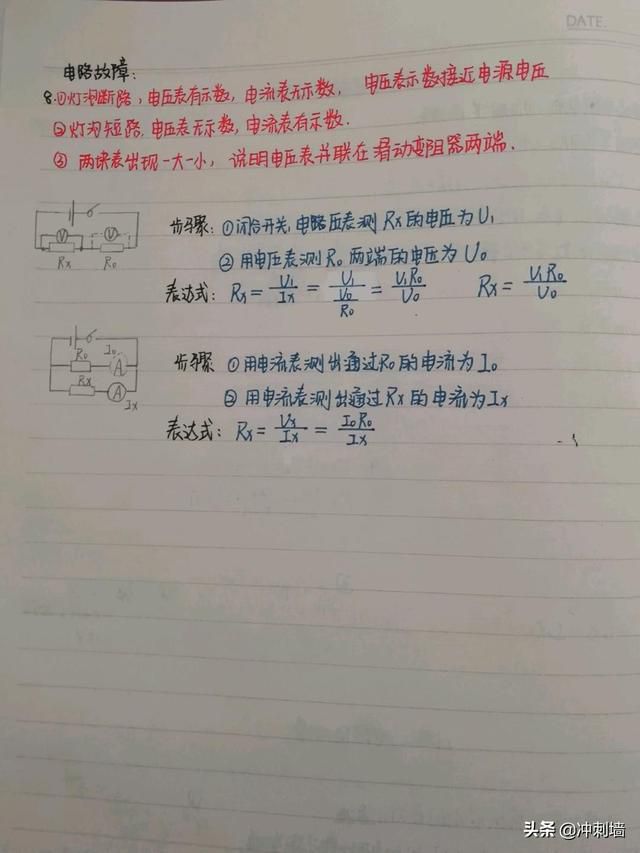 DATE.
电路故障:
8.①灯泡断路,电压表有示数,电流表无示数, 电压表示数接近电源电压
②灯泡短路,电压表无示数,电流表有示数.
③ 两块表出现一大一小, 说明电压表并联在滑动变阻器两端.
V V
Rx R₀
步骤: ①闭合开关,电路压表测Rx的电压为U₁
② 用电压表测R₀两端的电压为U₀
表达式: Rx = U₁/Ix = U₁/(U₀/R₀) = U₁R₀/U₀ Rx = U₁R₀/U₀
R₀ I₀ A
Rx A Ix
步骤 ①用电流表测出通过R₀的电流为I₀
② 用电流表测出通过Rx的电流为Ix
表达式: Rx = Ux/Ix = I₀R₀/Ix
头条 @冲刺墙